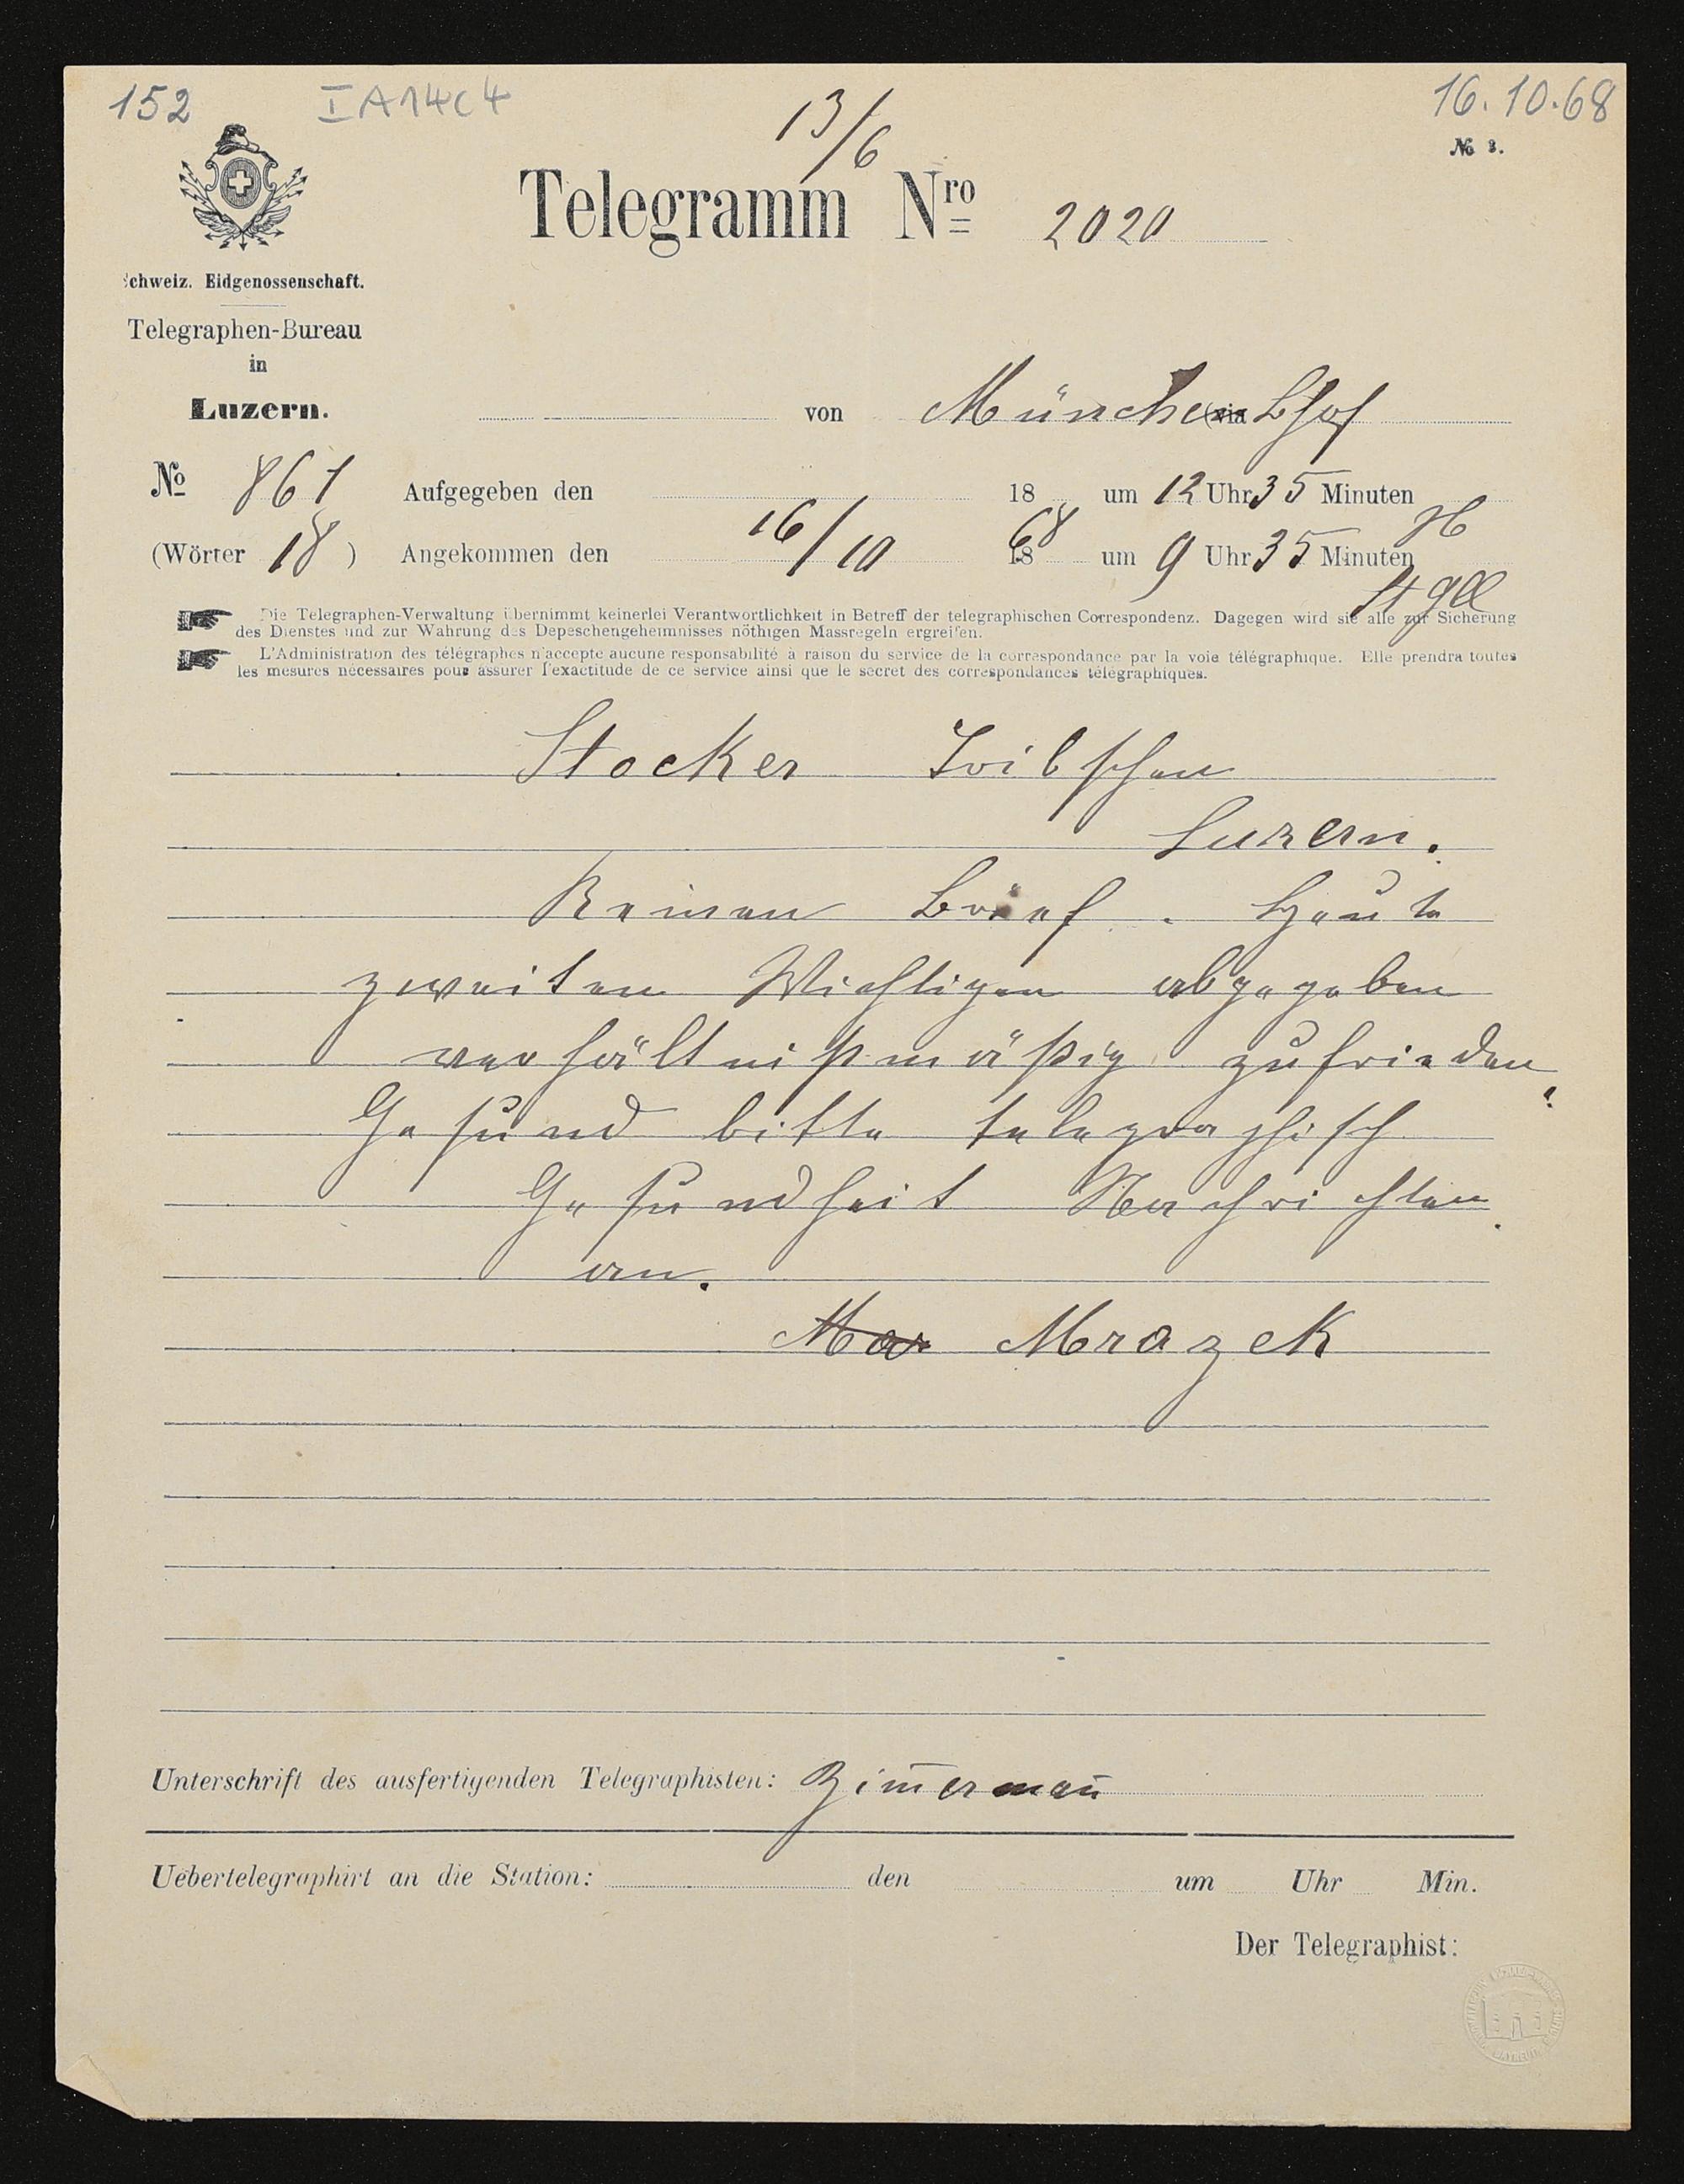 152 I A 14 c 4 13/6 16.10.68
No 3.
Telegramm Nro 2020
Schweiz. Eidgenossenschaft.
Telegraphen-Bureau
in
Luzern.
von München (via Bhof
No 861 Aufgegeben den 18 um 12 Uhr 35 Minuten
(Wörter 18) Angekommen den 16/10 1868 um 9 Uhr 35 Minuten
St gll
Die Telegraphen-Verwaltung übernimmt keinerlei Verantwortlichkeit in Betreff der telegraphischen Correspondenz. Dagegen wird sie alle zur Sicherung
des Dienstes und zur Wahrung des Depeschengeheimnisses nöthigen Massregeln ergreifen.
L'Administration des télégraphes n'accepte aucune responsabilité à raison du service de la correspondance par la voie télégraphique. Elle prendra toutes
les mesures nécessaires pour assurer l'exactitude de ce service ainsi que le secret des correspondances télégraphiques.
Stocker Tribschen
Luzern.
Keinen Brief. Heute
zweiten Wichtigen abgegeben
verhältnißmäßig zufrieden
Gesund bitte telegraphisch
Gesundheit Nachrichten
an.
Mar Mrazek
Unterschrift des ausfertigenden Telegraphisten: Zim̅erman̅
Uebertelegraphirt an die Station: den um Uhr Min.
Der Telegraphist: